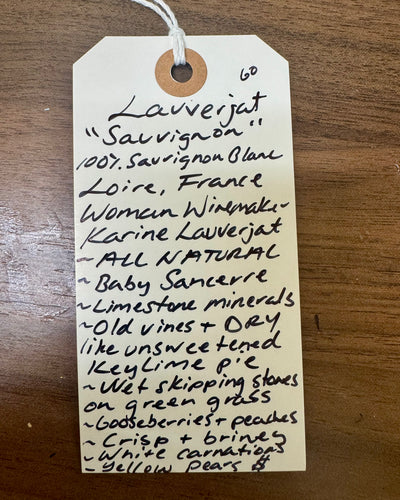 60
Lauverjat
"Sauvignon"
100% Sauvignon Blanc
Loire, France
Woman Winemaker
Karine Lauverjat
~ ALL NATURAL
~ Baby Sancerre
~ Limestone minerals
~ Old vines + DRY
like unsweetened
Key Lime pie
~ Wet skipping stones
on green grass
~ Gooseberries + peaches
~ Crisp + briney
~ White carnations
~ Yellow Pears $